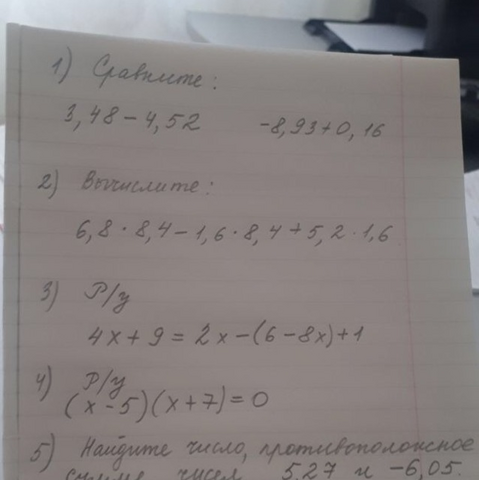 1) Сравните:
3,48 - 4,52 -8,93+0,16
2) Вычислите:
6,8 · 8,4 - 1,6 · 8,4 + 5,2 · 1,6
3) Р/у
4x + 9 = 2x - (6 - 8x) + 1
4) Р/у
(x - 5)(x + 7) = 0
5) Найдите число, противоположное
сумме чисел 5,27 и -6,05.